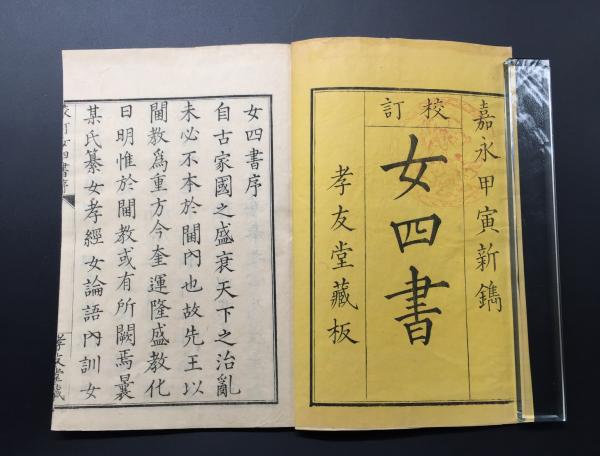 嘉永甲寅新鐫
校訂
女四書
孝友堂藏板
女四書序
自古家國之盛衰天下之治亂
未必不本於閫內也故先王以
閫教爲重方今奎運隆盛教化
日明惟於閫教或有所闕焉曩
某氏纂女孝經女論語內訓女
校訂女四書序
孝友堂藏